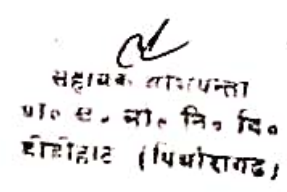 सहायक अभियन्ता
प्रा० ख० लो० नि० वि०
डीडीहाट (पिथौरागढ)